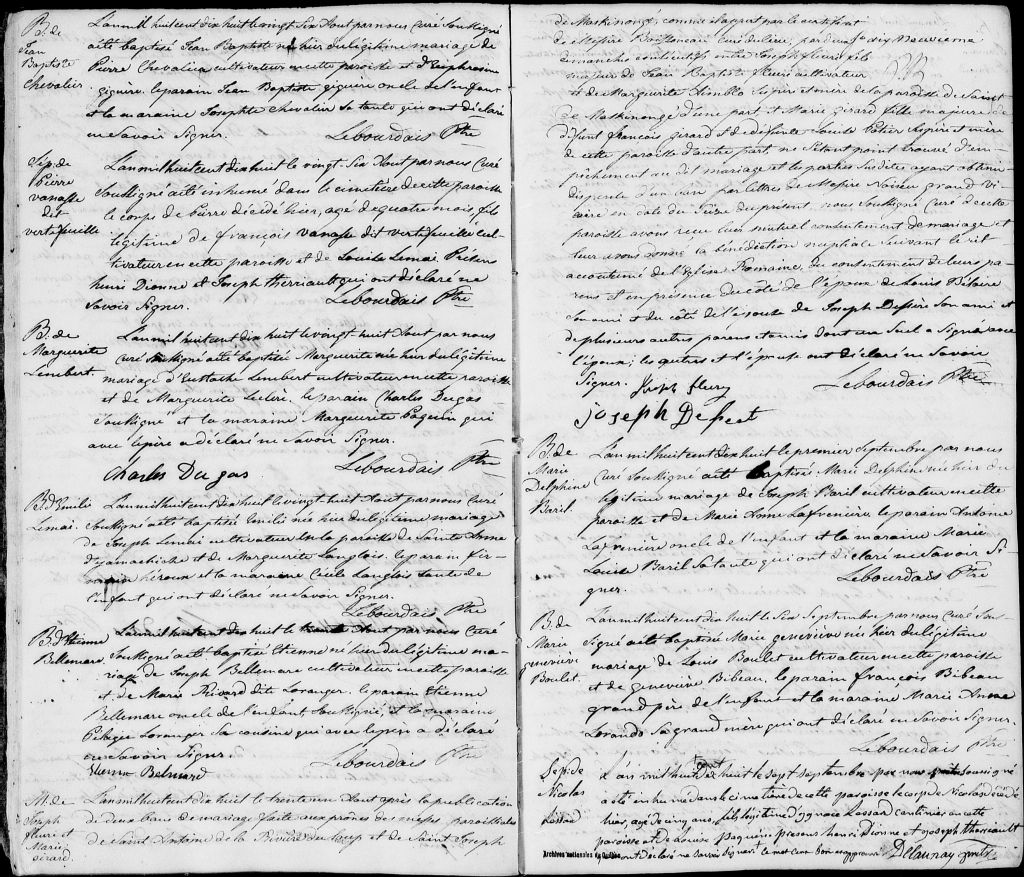 B. de
Jean
Baptiste
Chevalier
L'an mil huit cent dix huit le vingt six Aout par nous Curé Soussigné
a été baptisé Jean Baptiste né hier du légitime mariage de
Pierre Chevalier cultivateur en cette paroisse et d'Euphrosine
giguere, le parain Jean Baptiste giguere oncle de l'enfant
et la maraine Josephte Chevalier sa tante qui ont déclaré
ne Savoir Signer. Lebourdais Ptre
Sep. de
Pierre
vanasse
dit
vertefeuille
L'an mil huit cent dix huit le vingt Six Aout par nous Curé
Soussigné a été inhumé dans le cimetière de cette paroisse
le corps de Pierre décédé hier, agé de quatre mois, fils
légitime de françois vanasse dit vertefeuille cul-
tivateur en cette paroisse et de Louise Lemai. Présens
henri Dionne et Joseph therriault qui ont déclaré ne
Savoir Signer. Lebourdais Ptre
B. de
Marguerite
Lembert.
L'an mil huit cent dix huit le vingt huit Aout par nous
Curé Soussigné a été baptisée Marguerite née hier du légitime
mariage d'Eustache Lembert cultivateur en cette paroisse
et de Marguerite, le parain Charles Dugas
Soussigné et la maraine Marguerite Paquin qui
avec le père a déclaré ne Savoir Signer.
Charles Dugas Lebourdais Ptre
B. d'Emilie
Lemai.
L'an mil huit cent dix huit le vingt huit Aout par nous Curé
Soussigné a été baptisée Emilie née hier du légitime mariage
de Joseph Lemai cultivateur en la paroisse de Sainte Anne
d'yamachiche et de Marguerite Langlois. le parain
héroux et la maraine Cécile Langlois tante de
l'enfant qui ont déclaré ne Savoir Signer.
Lebourdais Ptre
B. d'Etienne
Bellemare.
L'an mil huit cent dix huit le trente Aout par nous Curé
Soussigné a été baptisé Etienne né hier du légitime ma-
riage de Joseph Bellemare cultivateur en cette paroisse
et de Marie Rivard dite Loranger. le parain Etienne
Bellemare oncle de l'enfant, Soussigné, et la maraine
Pelagie Loranger Sa cousine qui avec le père a déclaré
ne Savoir Signer.
Etienne Belmard Lebourdais Ptre
M. de
Joseph
fleuri et
Marie
Girard.
L'an mil huit cent dix huit le trente un Aout après la publication
de deux bans de mariage faite aux prônes des messes paroissiales
de Saint Antoine de la Rivière du Loup et de Saint Joseph
de Maskinongé, comme il appert par le certificat
de Messire Curé du lieu, par
dimanche consécutifs entre Joseph fleuri fils
majeur de Jean Baptiste fleuri cultivateur
et de Marguerite Ses père et mère de la paroisse de Saint
de Maskinongé d'une part, et Marie girard fille majeure de
défunt françois girard et de défunte Louise Ses père et mère
de cette paroisse d'autre part, ne S'étant point trouvé d'em-
pêchement au dit mariage et les parties Susdites ayant obtenu
dispense d'un ban par lettres de Messire Noiseu grand vi-
caire en date du Seize du présent, nous Soussigné Curé de cette
paroisse avons reçu leur mutuel consentement de mariage et
leur avons donné la bénédiction nuptiale Suivant le rit
accoutumé de l'Eglise Romaine, du consentement de leurs pa-
rens et en présence du côté de l'époux de Louis Bélaire
Son ami et du côté de l'épouse de Joseph Son ami et
de plusieurs autres parens et amis dont un Seul a Signé avec
l'époux; les autres et l'épouse ont déclaré ne Savoir
Signer. Joseph fleury Lebourdais Ptre
Joseph
B. de
Marie
Delphine
Baril
L'an mil huit cent dix huit le premier Septembre par nous
Curé Soussigné a été baptisée Marie Delphine née hier du
légitime mariage de Joseph Baril cultivateur en cette
paroisse et de Marie Anne Lafreniere, le parain Antoine
Lafrenière oncle de l'enfant et la maraine Marie
Louise Baril Sa tante qui ont déclaré ne Savoir Si-
gner. Lebourdais Ptre
B. de
Marie
geneviève
Boulet.
L'an mil huit cent dix huit le Six Septembre par nous Curé Sous-
signé a été baptisée Marie geneviève née hier du légitime
mariage de Louis Boulet cultivateur en cette paroisse
et de geneviève Bibeau, le parain françois Bibeau
grand père de l'enfant et la maraine Marie Anne
Sa grand mère qui ont déclaré ne Savoir Signer.
Lebourdais Ptre
Sep. de
Nicolas
Lessard
L'an mil huit cent dix huit le sept septembre par nous soussigné
a été inhumé dans le cimetière de cette paroisse le corps de Nicolas décédé
hier, agé de cinq ans, fils légitime d'ignace Lessard en cette
paroisse et de Louise Paquin. présens henri Dionne et joseph Therreault
qui ont déclaré ne savoir signer
Delaunay ptre
Archives nationales du Québec